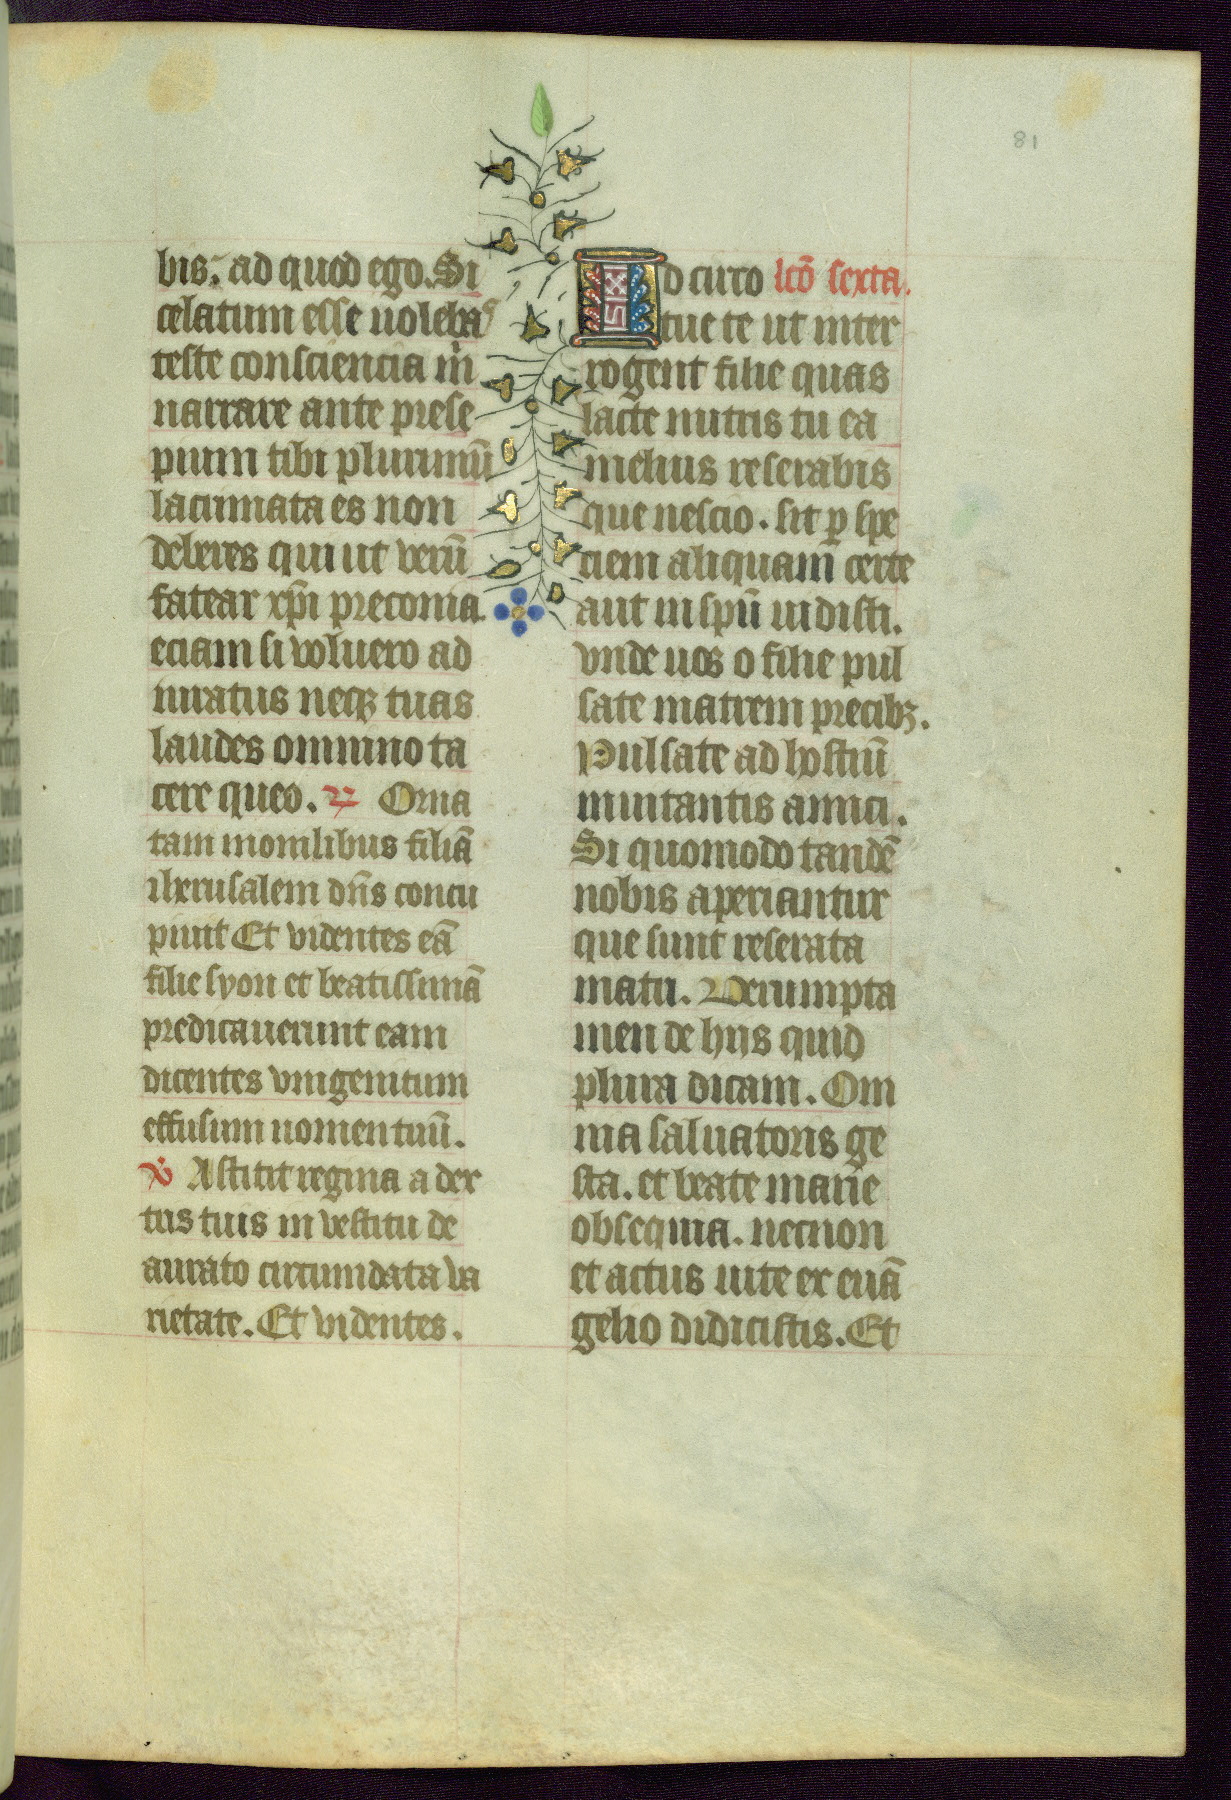 81
bis. ad quod ego. Si
celatum esse uoleba⁹
teste consciencia m̄
narrare ante prese
pium tibi plurimū
lacrimata es non
deberes qui ut verū
fatear xp̄i preconia
eciam si voluero ad
miratus neqꝫ tuas
laudes omnino ta
cere queo. R Orna
tam monilibus filiā
iherusalem dn̄s concu
piuit Et videntes eā
filie syon et beatissimā
predicauerunt eam
dicentes vnigenitum
effusum nomen tuū.
V Astitit regina a dex
tris tuis in vestitu de
aurato circumdata va
rietate. Et videntes.
Id circo lcō sexta.
tue te ut inter
rogent filie quas
lacte nutris tu ea
melius reserabis
que nescio. sit ꝑ spe
ciem aliquam certe
aut in spū uidisti.
vnde uos o filie pul
sate matrem precibꝫ.
Pulsate ad hostiū
minitantis amici.
Si quomodo tandē
nobis aperiantur
que sunt reserata
matri. Verumpta
men de hijs quid
plura dicam. Om
nia saluatoris ge
sta. et beate marie
obsequia. necnon
et actus uite ex euā
gelio didicistis. Et